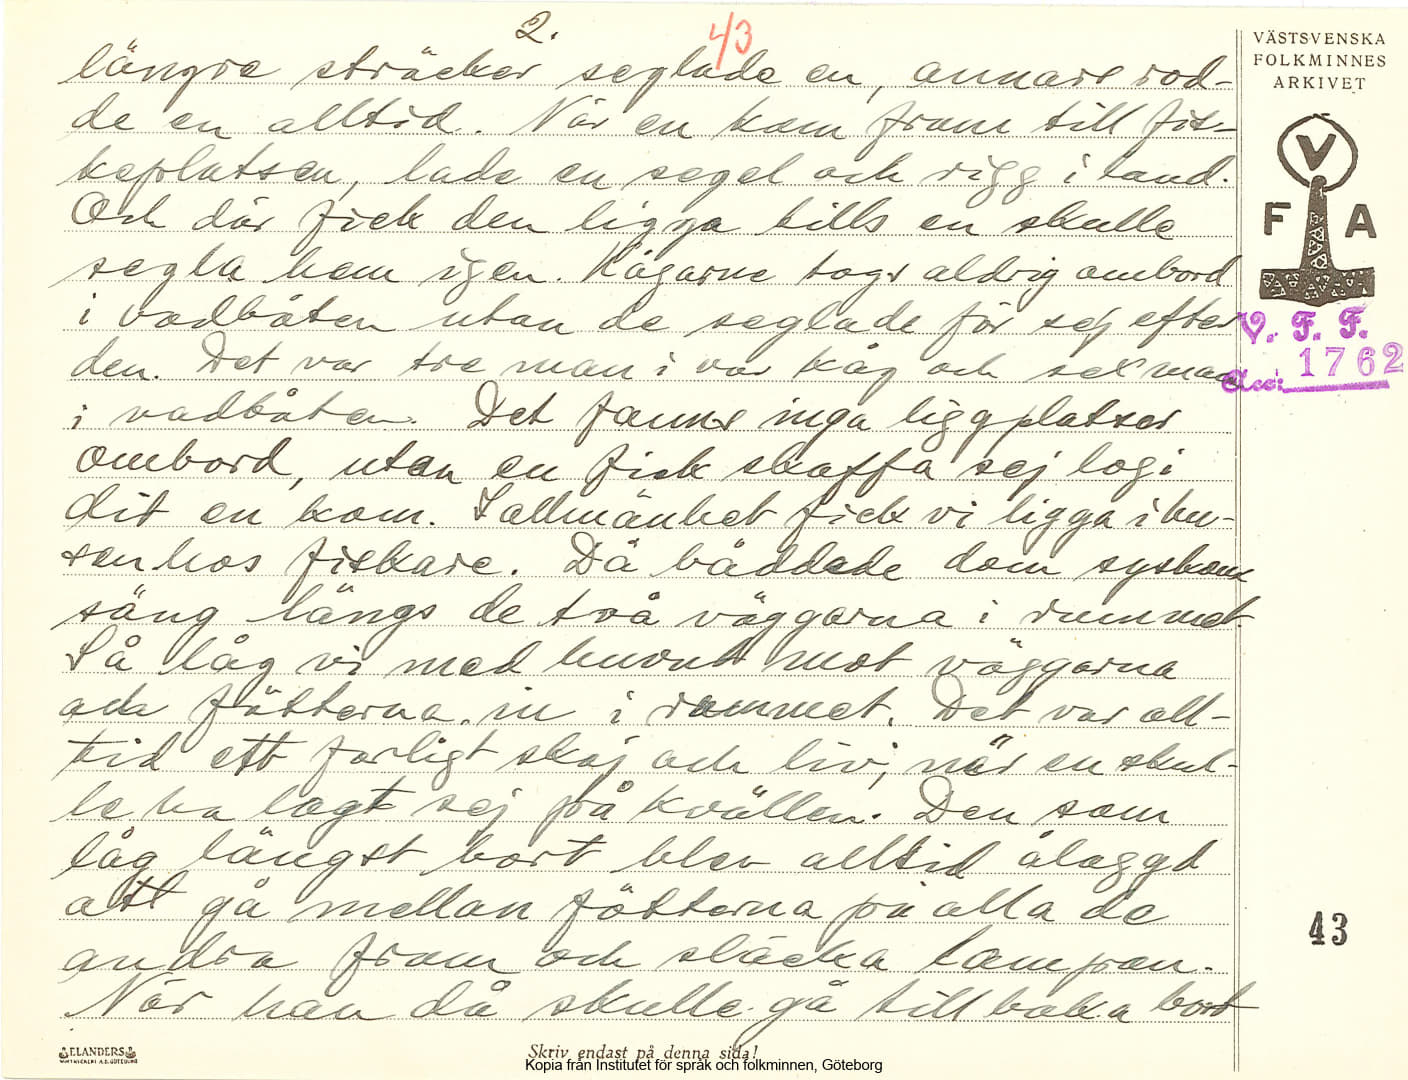 2.
43
längre sträcker seglade en, annars rod-
de en alltid. När en kom fram till fis-
keplatsen, lade en segel och rigg i land.
Och där fick den ligga tills en skulle
segla hem igen. Kågarne togs aldrig ombord
i vadbåten utan de seglade för sej efter
den. Det var tre man i var kåg och sex man
i vadbåten. Det fanns inga liggplatser
ombord, utan en fick skaffa sej logi
dit en kom. I allmänhet fick vi ligga i hu-
sen hos fiskare. Då bäddade dom syskon
säng längs de två väggarna i rummet.
Så låg vi med huvut mot väggarna
och fötterna in i rummet. Det var all-
tid ett farligt skoj och liv, när en skul-
le ha lagt sej på kvällen. Den som
låg längst bort blev alltid ålaggd
att gå mellan fötterna på alla de
andra fram och släcka lampan.
När han då skulle gå tillbaka bort
VÄSTSVENSKA
FOLKMINNES
ARKIVET
V
F A
V. F. F.
Acc: 1762
43
ELANDERS
Skriv endast på denna sida!
Kopia från Institutet för språk och folkminnen, Göteborg